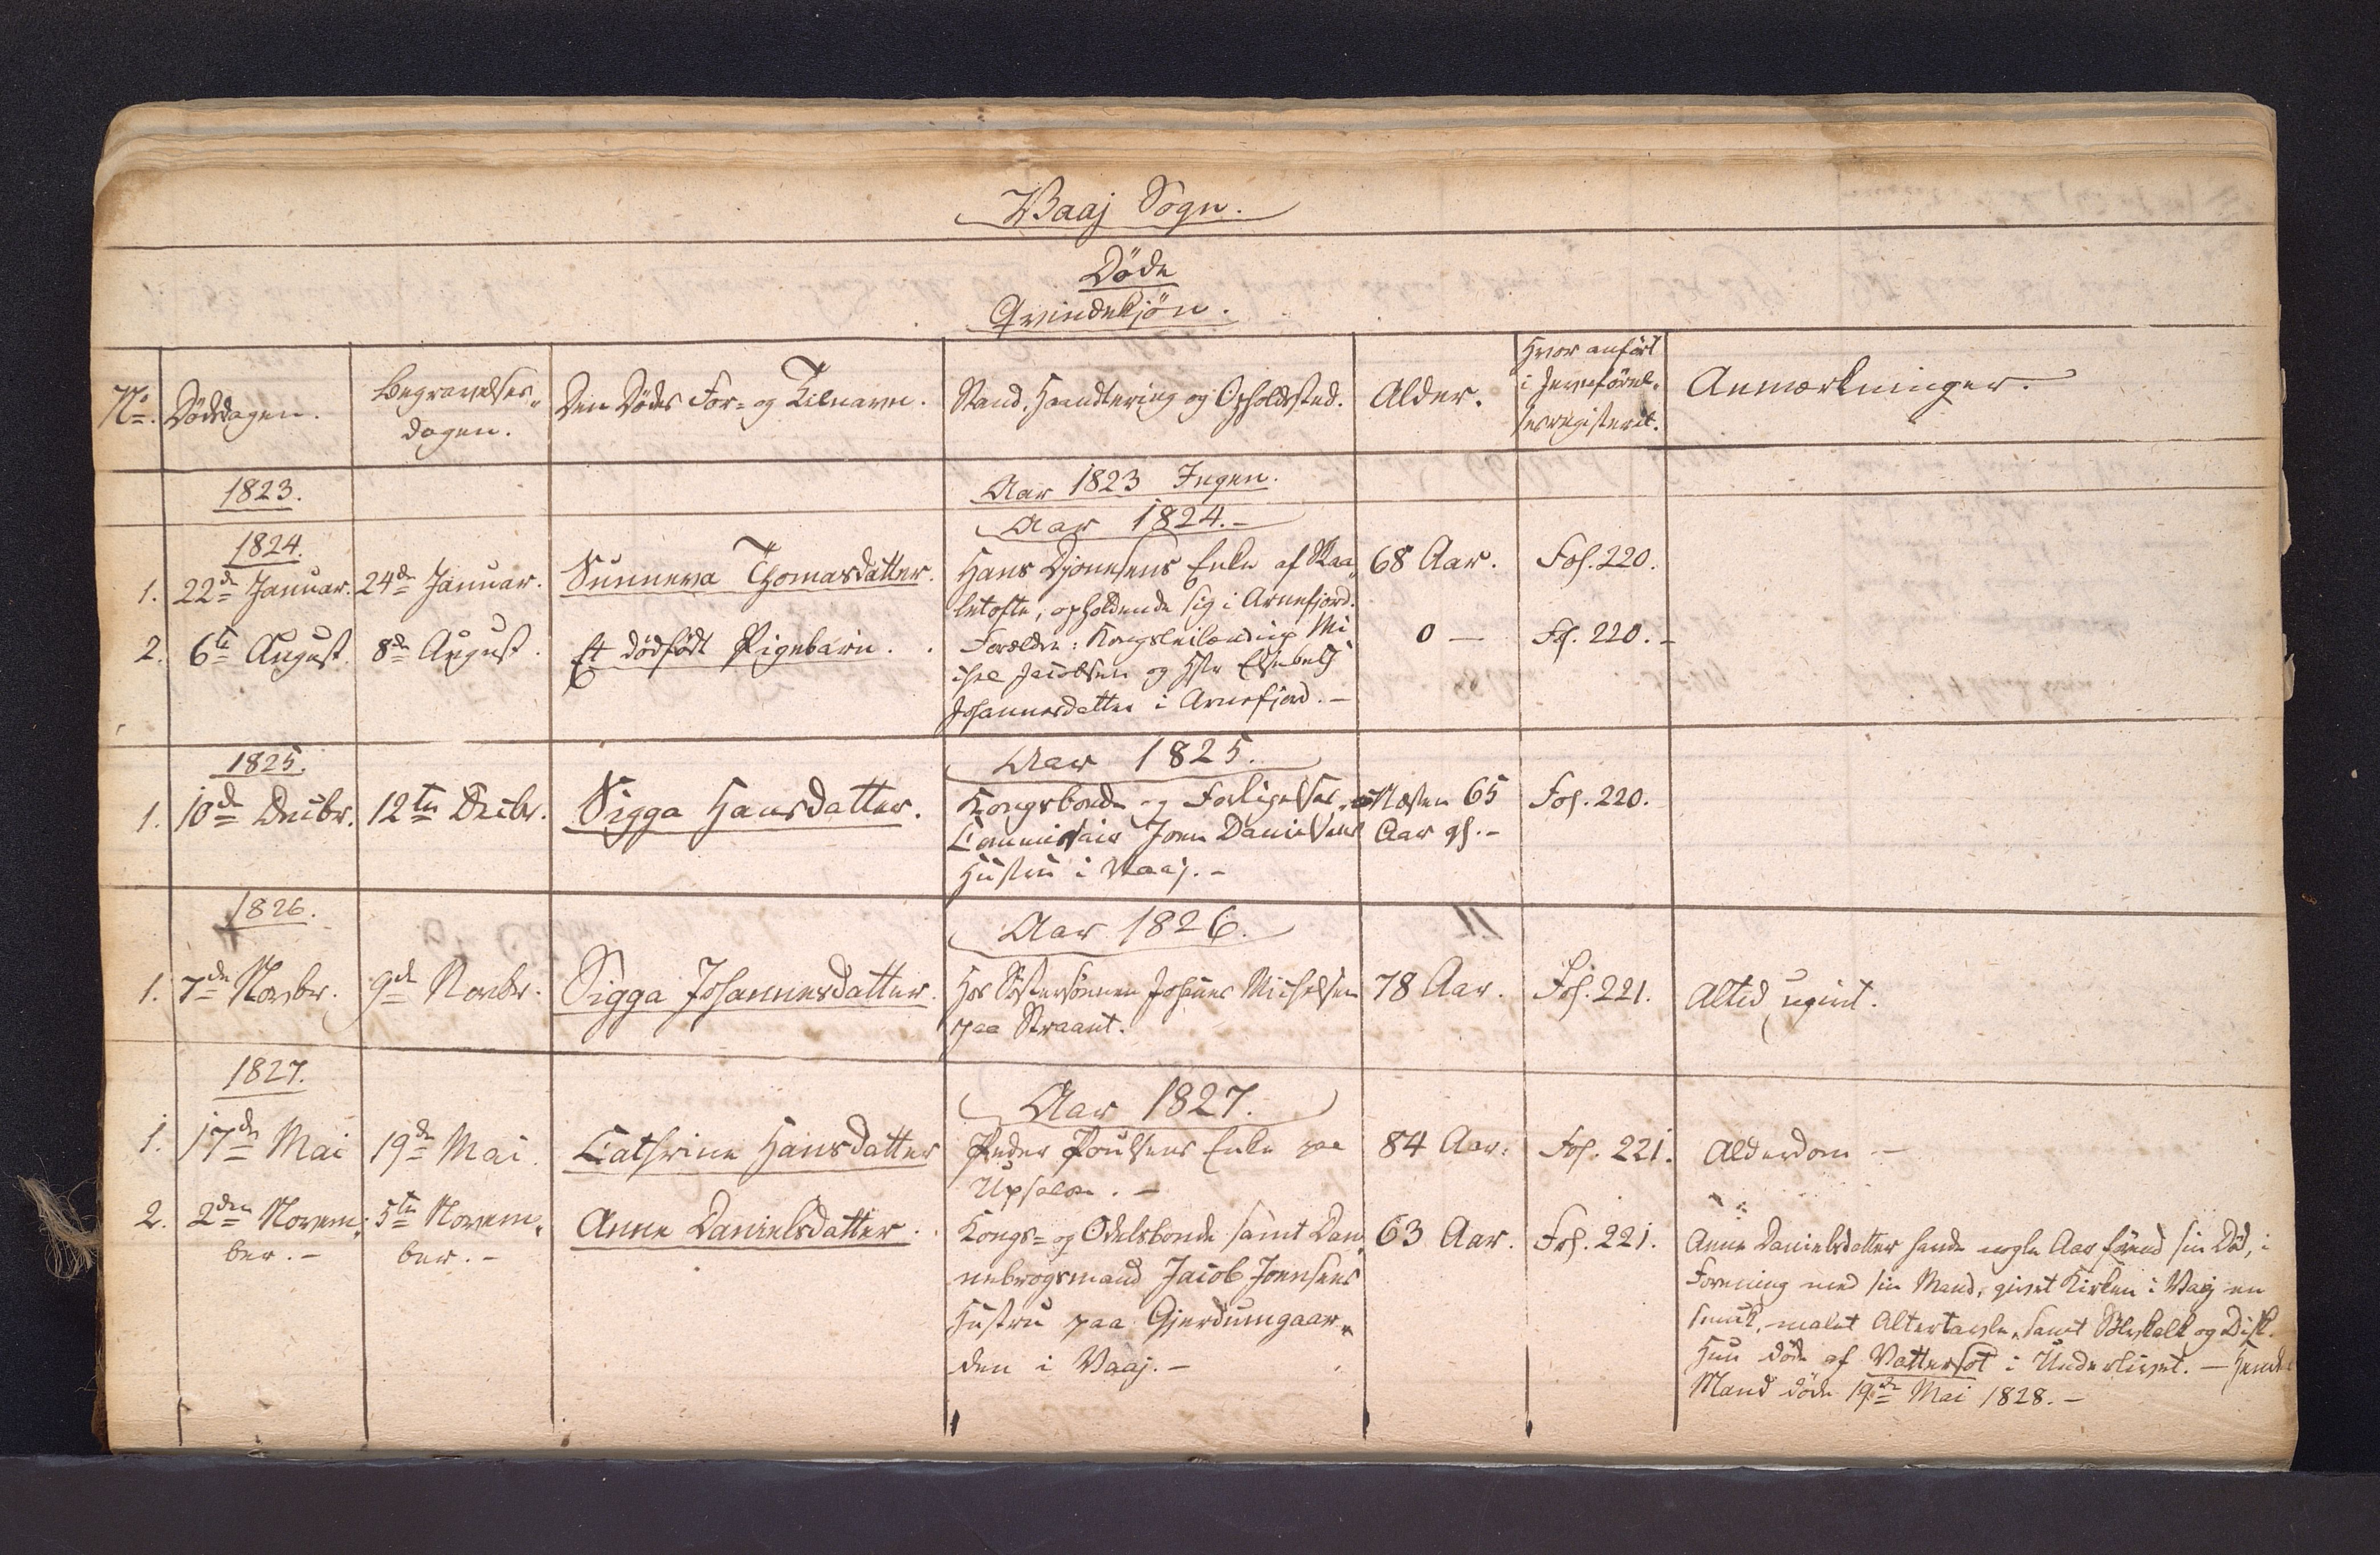 Waaj Sogn.
Døde
Qvindekjøn.
No. Dødsdagen. Begravelses- dagen. Den Dødes For- og Tilnavn. Stand, Haandtering og Opholdsted. Alder. Hvor anført i Jevnførel- sesregisteret. Anmærkninger.
1823. Aar 1823 Ingen.
Aar 1824.-
1824.
1. 22de Januar. 24de Januar. Sunneva Thomasdatter. Hans Djonesens Enke af Skaa- 68 Aar. Fol. 220.
letofte, opholdende sig i Arnefjord.
2. 6te August. 8de August. Et dødfødt Pigebarn. Forældre: Kongsleilænding Mi 0 — Fol. 220.-
chel Jacobsen og Hstr Elsebeth
Johannesdatter i Arnefjord.-
1825. Aar 1825.
1. 10de Decbr. 12te Decbr. Sigga Hansdatter. Kongsbonde og Forligelses- Næsten 65 Fol. 220.
Commissair Joen Danielsens Aar gl.-
Hustru i Waaj.-
1826. Aar 1826.
1. 7de Novbr. 9de Novbr. Sigga Johannesdatter. Hos Søstersønnen Johannes Michelsen 78 Aar. Fol. 221. Altid ugivt.
paa
1827. Aar 1827.
1. 17de Mai 19de Mai. Cathrine Hansdatter Peder Poulsens Enke paa 84 Aar. Fol. 221. Alderdom —
Upsalon.-
2. 2den Novem- 5te Novem- Anne Danielsdatter. Kongs- og Odelsbonde samt Dan 63 Aar. Fol. 221. Anne Danielsdatter havde nogle Aar førend sin Død, i
ber.- ber.- nebrogsmand Jacob Joensens Forening med sin Mand, givet Kirken i Waaj en
Hustru paa Gjerdumgaar- smuk, malet Altertavle, samt Sølvkalk og Disk.
den i Waaj.- Hun døde af Vattersot i Underlivet. — Hendes
Mand døde 19de Mai 1828.-